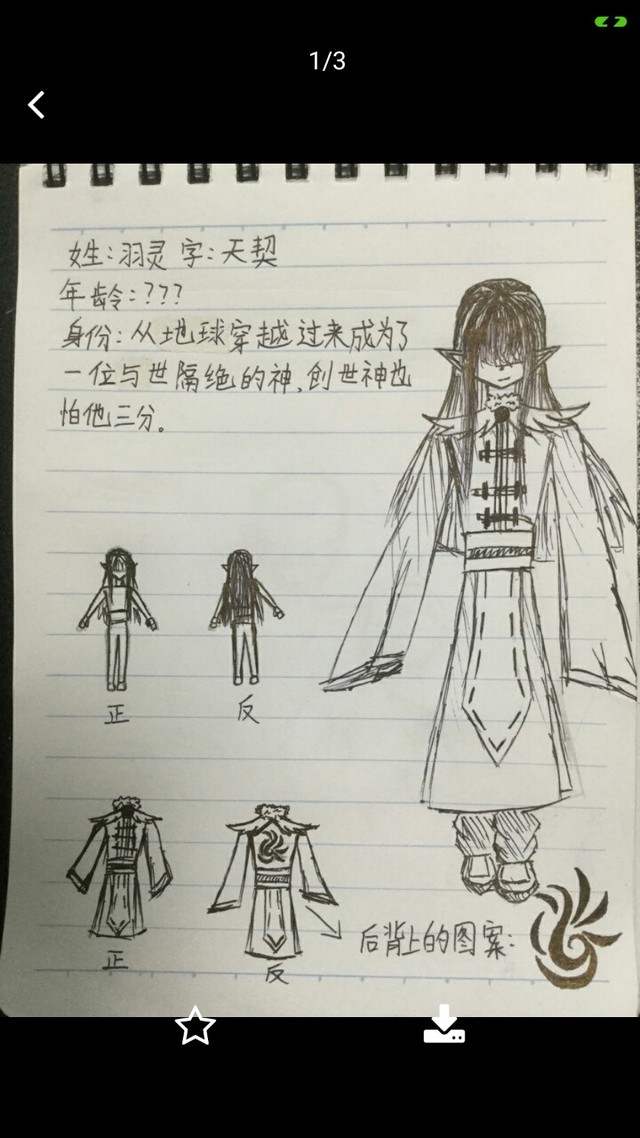 1/3
姓：羽灵 字：天契
年龄：???
身份：从地球穿越过来成为了
一位与世隔绝的神，创世神也
怕他三分。
正
反
正
反
后背上的图案：